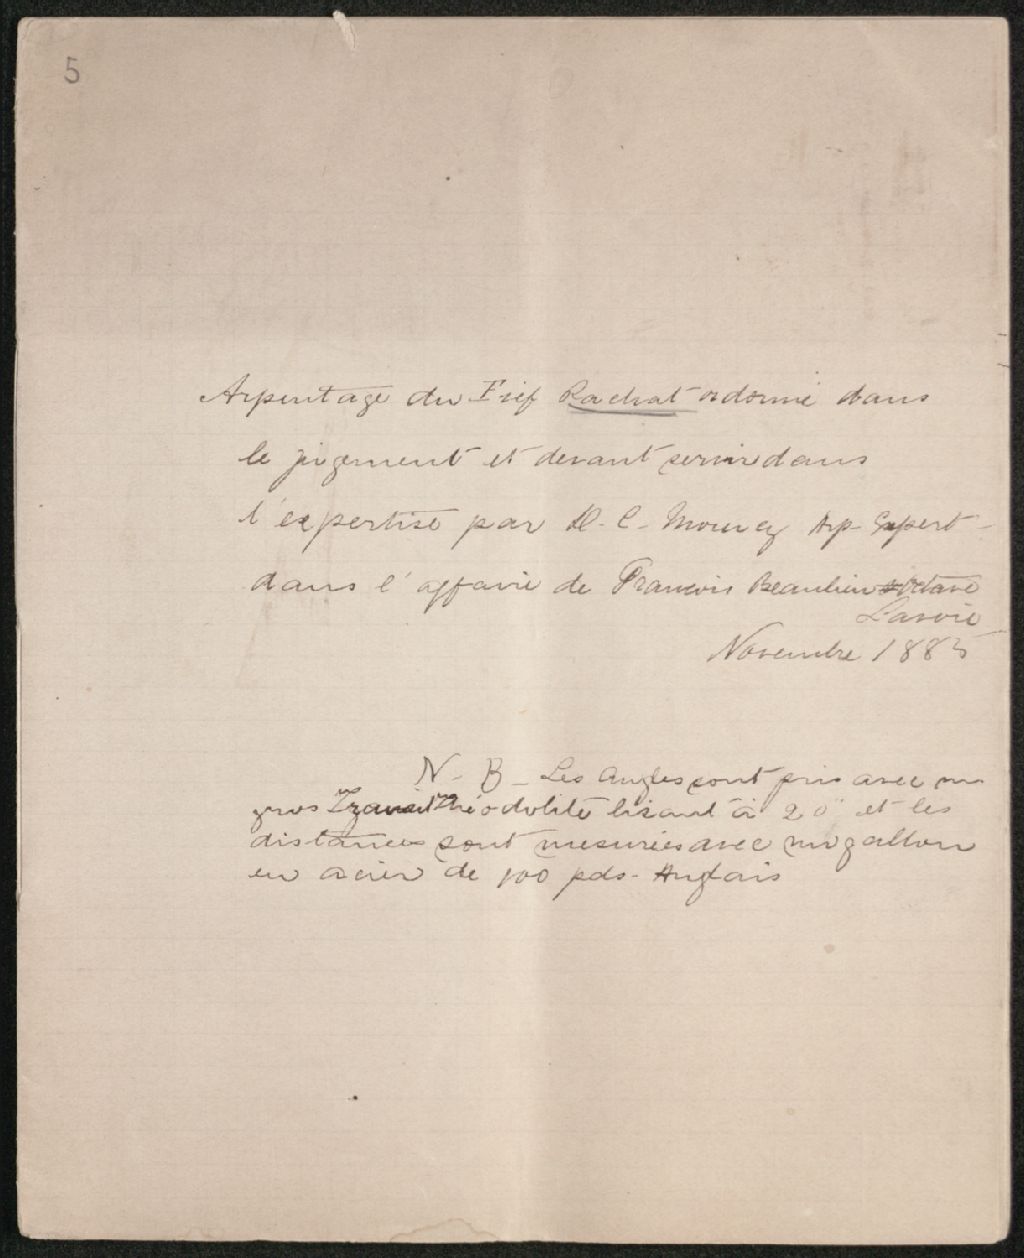 5
Arpentage du Fief Rachat ordonné dans
le jugement et devant servir dans
l'expertise par D. C. Morency Arp Expert
dans l'affaire de François Beaulieu & Octave
Lavoie
Novembre 1885
N. B. Les Angles sont pris avec un
gros Transit Théodolite lisant à 20" et les
distances sont mesurées avec un gallon
en acier de 100 pds. Anglais